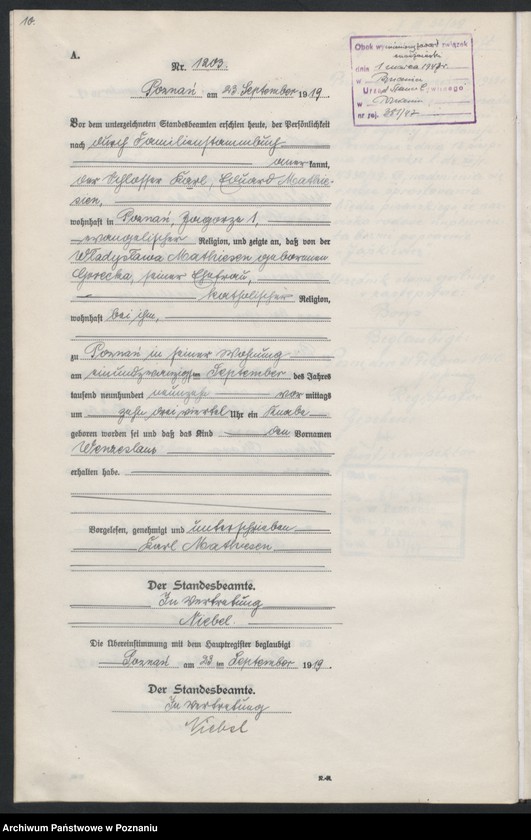 10.
A.
Nr. 1203.
Poznań am 23 September 1919.
Vor dem unterzeichneten Standesbeamten erschien heute, der Persönlichkeit
nach durch Familienstammbuch
anerkannt,
der Schlosser Karl, Eduard Mathie-
sen,
wohnhaft in Poznań, Zagorze 1,
evangelischer Religion, und zeigte an, daß von der
Władysława Mathiesen geborenen
Gorecka, seiner Ehefrau,
katholischer Religion,
wohnhaft bei ihm,
zu Poznań in seiner Wohnung
am einundzwanzigsten September des Jahres
tausend neunhundert neunzehn vor mittags
um zehn drei viertel Uhr ein Knabe
geboren worden sei und daß das Kind den Vornamen
Wenzeslaus
erhalten habe.
Vorgelesen, genehmigt und unterschrieben
Karl Mathiesen
Der Standesbeamte.
In Vertretung
Niebel.
Die Übereinstimmung mit dem Hauptregister beglaubigt
Poznań am 23 ten September 1919.
Der Standesbeamte.
In Vertretung
Niebel
K.-H.
Obok wymieniony zawarł związek
małżeński
dnia 1 marca 1947r.
w Poznaniu
Urząd Stanu Cywilnego
w Poznaniu
nr zaj. 251/47
Archiwum Państwowe w Poznaniu